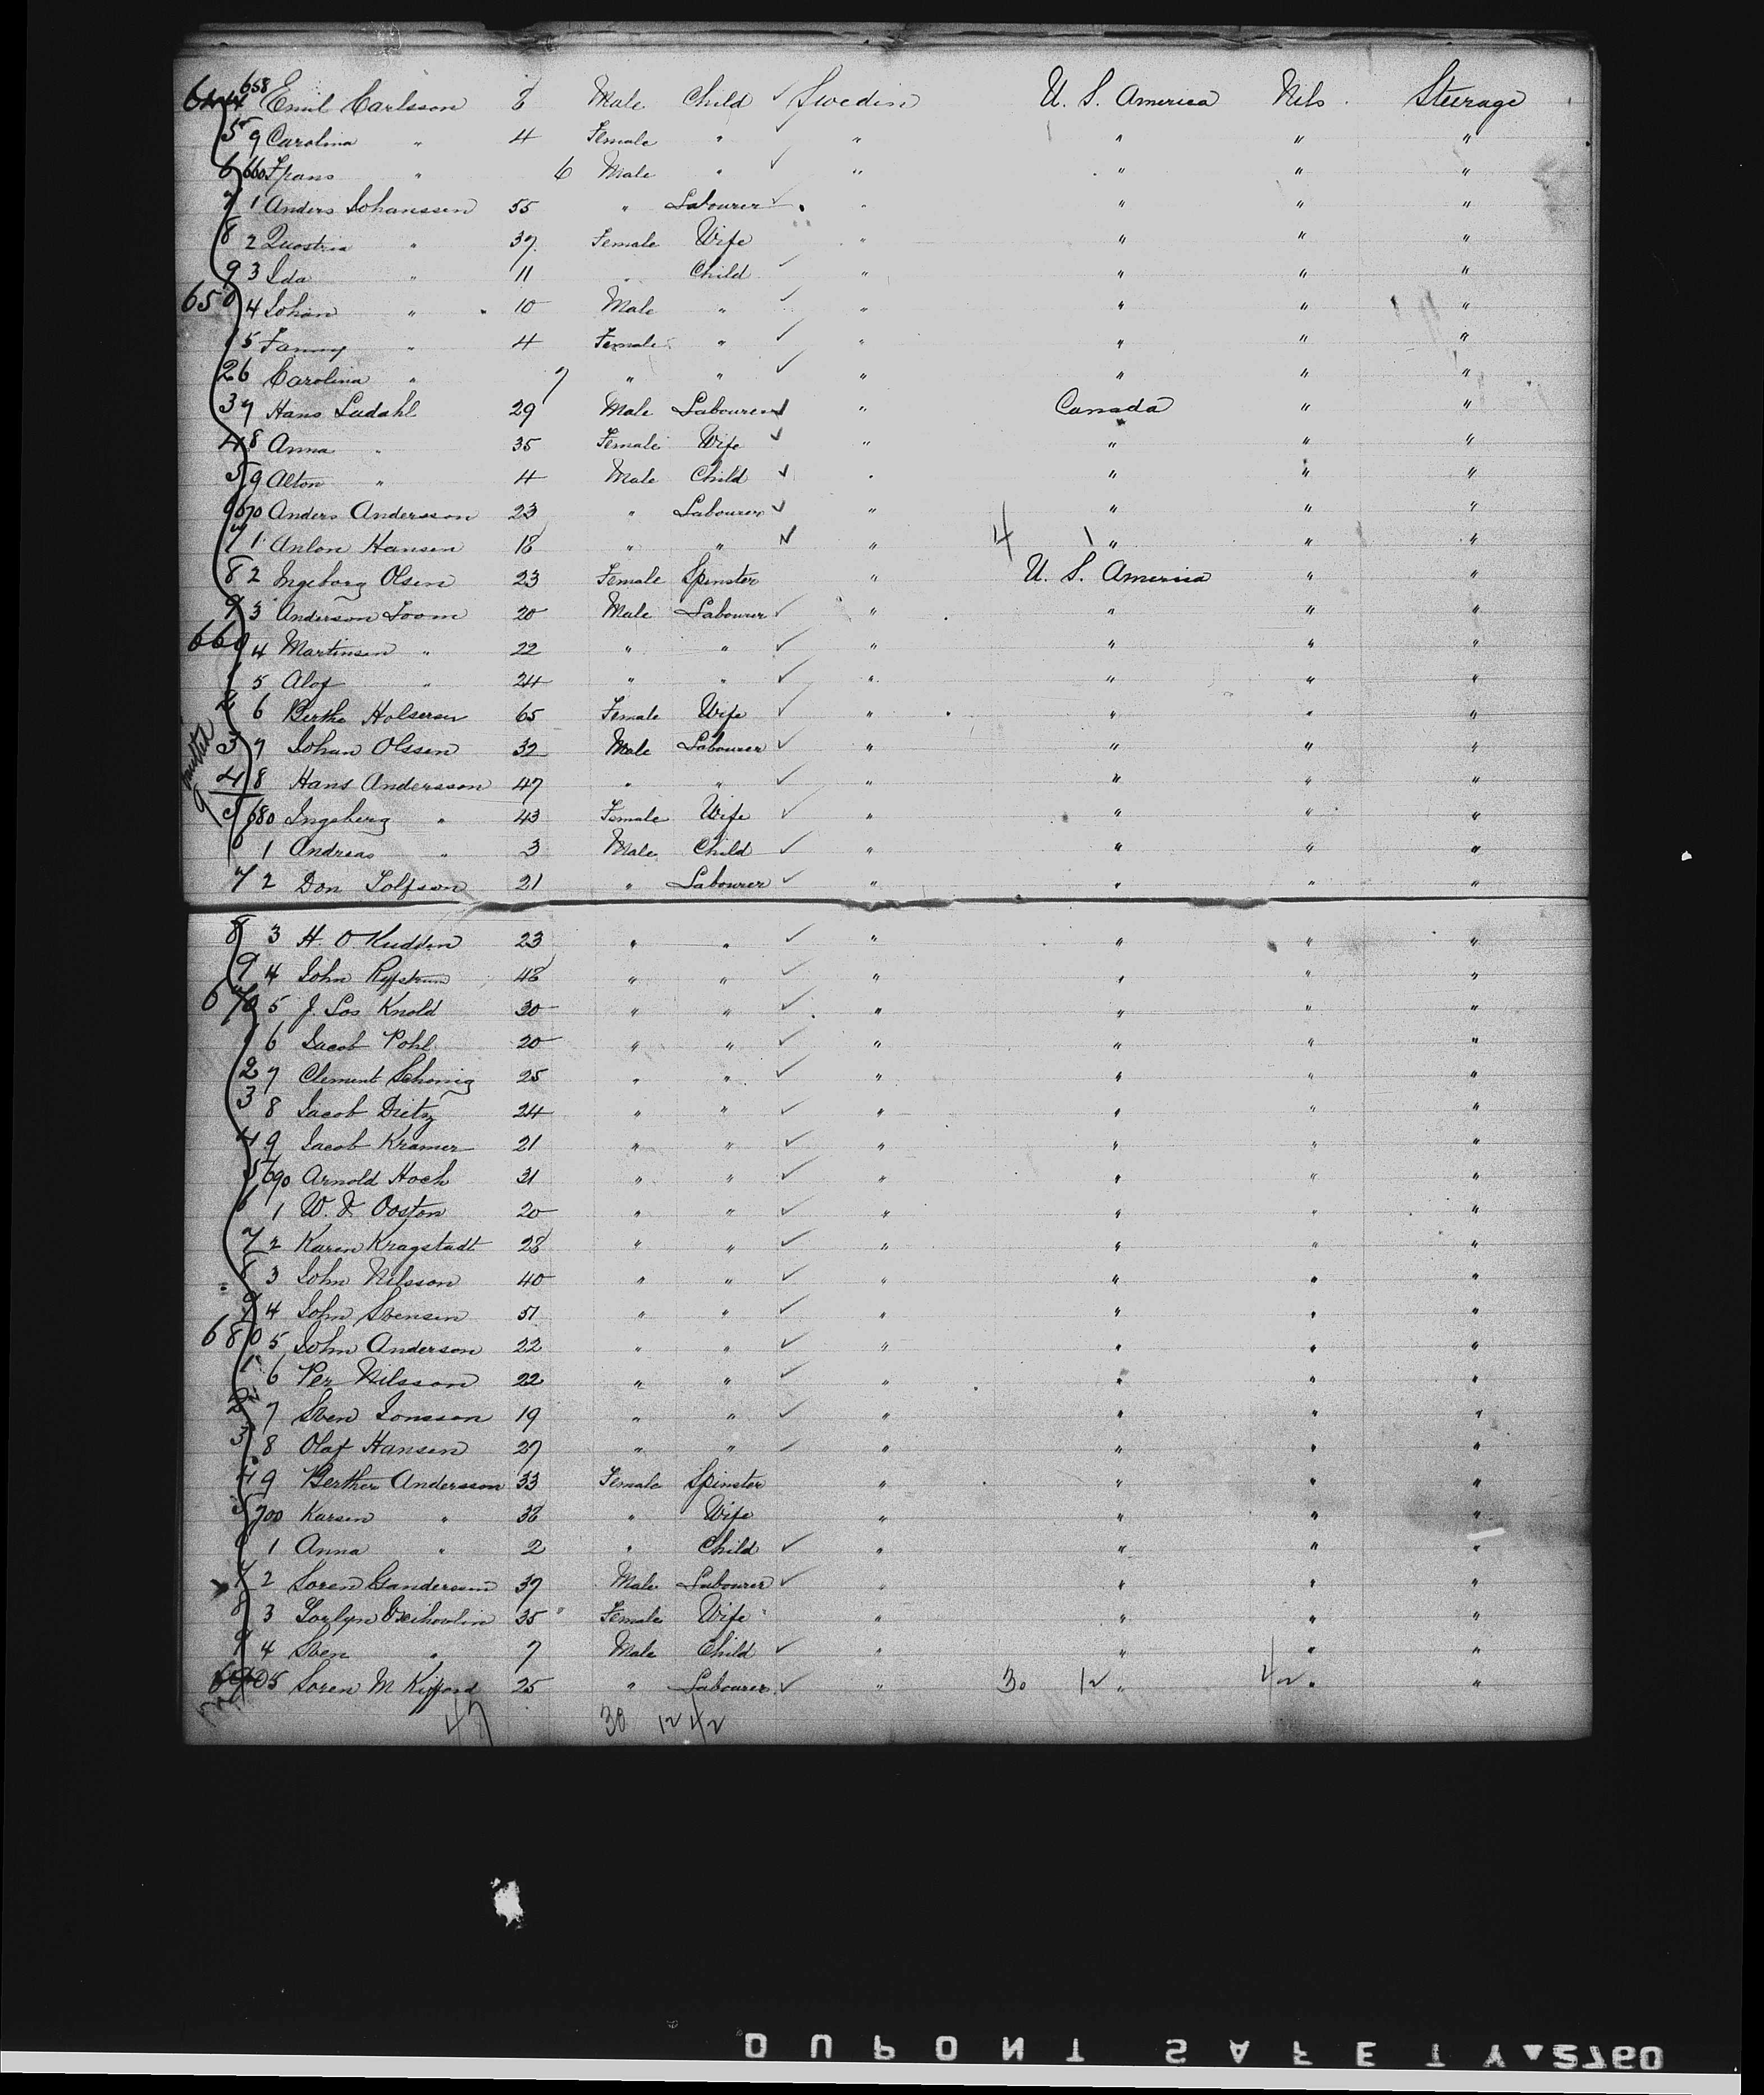 644 658 Emil Carlsson 8 Male Child ✓ Sweden U. S. America Nils Steerage
5 9 Carolina " 4 Female " " " " "
6 660 Frans " 6 Male " ✓ " " " "
7 1 Anders Johanssen 55 " Labourer ✓ " " " "
8 2 " 37 Female Wife " " " "
9 3 Ida " 11 " Child ✓ " " " "
650 4 Johan " 10 Male " ✓ " " " "
1 5 Fanny " 4 Female " ✓ " " " "
2 6 Carolina " 7 " " ✓ " " " "
3 7 Hans Ludahl 29 Male Labourer ✓ " Canada " "
4 8 Anna " 35 Female Wife ✓ " " " "
5 9 Alton " 4 Male Child ✓ " " " "
6 670 Anders Andersson 23 " Labourer ✓ " " " "
7 1 Anton Hansen 18 " " ✓ " 4 1 " " "
8 2 Ingeborg Olsen 23 Female Spinster " U. S. America " "
9 3 Anderson Toom 20 Male Labourer ✓ " " " "
660 4 Martinsen " 22 " " ✓ " " " "
1 5 Alof " 24 " " ✓ " " " "
2 6 Bertha Holsersen 65 Female Wife ✓ " " " "
3 7 Johan Olssen 32 Male Labourer ✓ " " " "
4 8 Hans Andersson 47 " " ✓ " " " "
9 omitted
5 680 Ingeberg " 43 Female Wife ✓ " " " "
6 1 Andreas " 3 Male Child ✓ " " " "
7 2 Don Tolfson 21 " Labourer ✓ " " " "
8 3 H. O Kudden 23 " " ✓ " " " "
9 4 John 48 " " ✓ " " " "
670 5 J. Los Knold 30 " " ✓ " " " "
1 6 Jacob Pohl 20 " " ✓ " " " "
2 7 Clement Schonig 25 " " ✓ " " " "
3 8 Jacob Dietz 24 " " ✓ " " " "
4 9 Jacob Kramer 21 " " ✓ " " " "
5 690 Arnold Hoch 31 " " ✓ " " " "
6 1 W. & Ooston 20 " " ✓ " " " "
7 2 Karen Kragstadt 28 " " ✓ " " " "
8 3 John Nilsson 40 " " ✓ " " " "
9 4 John Svensen 51 " " ✓ " " " "
680 5 John Anderson 22 " " ✓ " " " "
1 6 Per Nilsson 22 " " ✓ " " " "
2 7 Sven Jonsson 19 " " ✓ " " " "
3 8 Olaf Hansen 27 " " ✓ " " " "
4 9 Berther Andersson 33 Female Spinster " " " "
5 700 Karsen " 38 " Wife " " " "
6 1 Anna " 2 " Child ✓ " " " "
7 2 Soren Ganderson 37 Male Labourer ✓ " " " "
8 3 Torlyn 35 Female Wife " " " "
9 4 Sven " 7 Male Child ✓ " " " "
690 5 Soren M 25 " Labourer ✓ " 30 12 " 42 " "
47 30 12 42
DUPONT SAFETY 2760